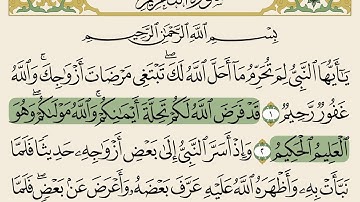 سُورَةُ التَّحْرِيمِ
بِسْمِ ٱللَّهِ ٱلرَّحْمَٰنِ ٱلرَّحِيمِ
يَٰٓأَيُّهَا ٱلنَّبِىُّ لِمَ تُحَرِّمُ مَآ أَحَلَّ ٱللَّهُ لَكَۖ تَبْتَغِى مَرْضَاتَ أَزْوَٰجِكَۚ وَٱللَّهُ
غَفُورٌ رَّحِيمٌ ١ قَدْ فَرَضَ ٱللَّهُ لَكُمْ تَحِلَّةَ أَيْمَٰنِكُمْۚ وَٱللَّهُ مَوْلَىٰكُمْۖ وَهُوَ
ٱلْعَلِيمُ ٱلْحَكِيمُ ٢ وَإِذْ أَسَرَّ ٱلنَّبِىُّ إِلَىٰ بَعْضِ أَزْوَٰجِهِۦ حَدِيثًا فَلَمَّا
نَبَّأَتْ بِهِۦ وَأَظْهَرَهُ ٱللَّهُ عَلَيْهِ عَرَّفَ بَعْضَهُۥ وَأَعْرَضَ عَنۢ بَعْضٍۖ فَلَمَّا